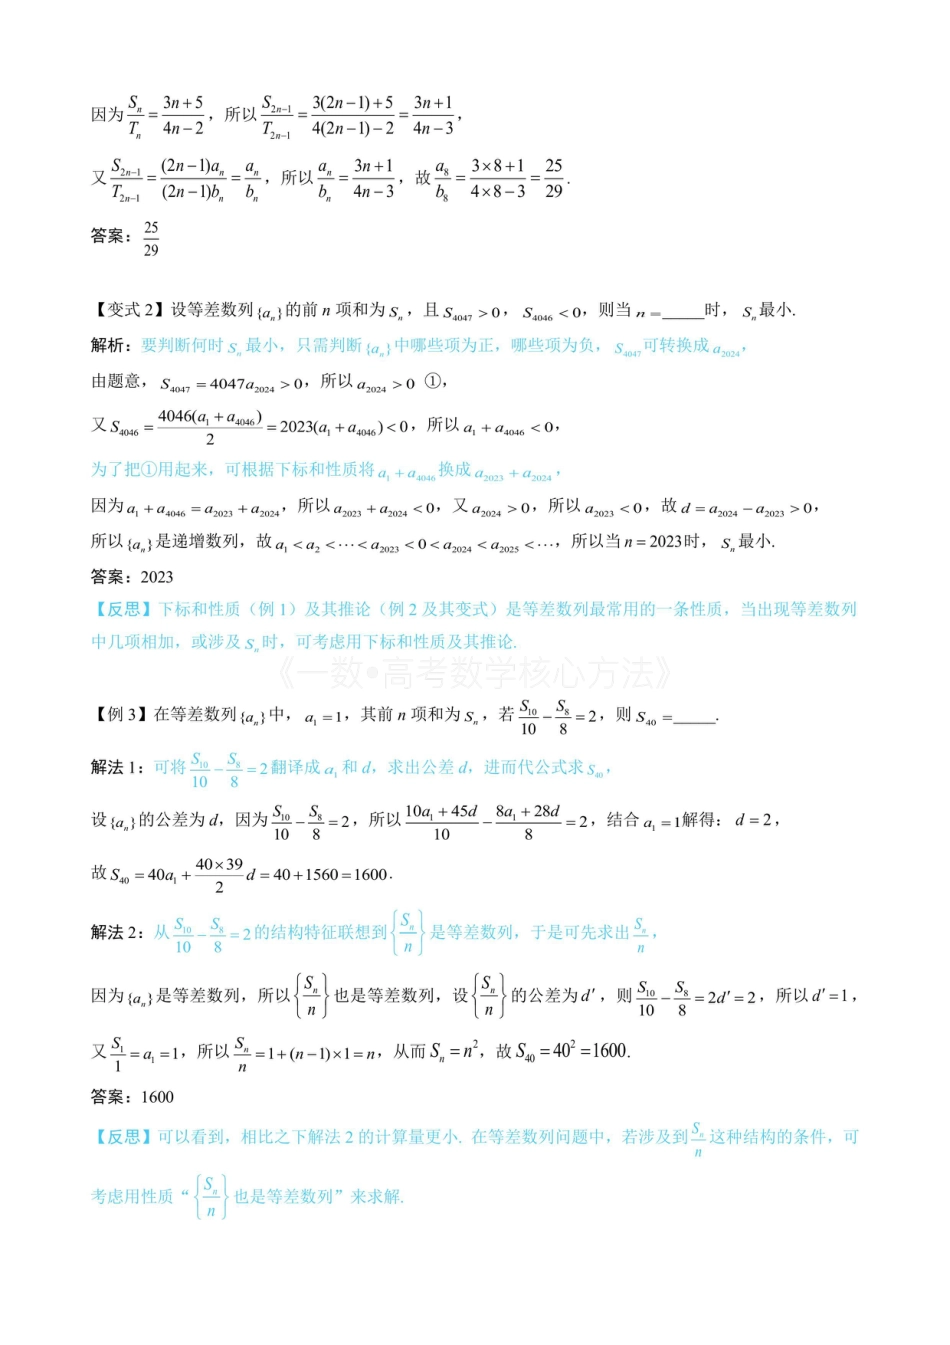 因为$\frac{S_n}{T_n}=\frac{3n+5}{4n-2}$，所以$\frac{S_{2n-1}}{T_{2n-1}}=\frac{3(2n-1)+5}{4(2n-1)-2}=\frac{3n+1}{4n-3}$，
又$\frac{S_{2n-1}}{T_{2n-1}}=\frac{(2n-1)a_n}{(2n-1)b_n}=\frac{a_n}{b_n}$，所以$\frac{a_n}{b_n}=\frac{3n+1}{4n-3}$，故$\frac{a_8}{b_8}=\frac{3×8+1}{4×8-3}=\frac{25}{29}$.
答案：$\frac{25}{29}$
【变式 2】设等差数列$\{a_n\}$的前 n 项和为$S_n$，且$S_{4047}>0$，$S_{4046}<0$，则当 n =_____时，$S_n$最小.
解析：要判断何时$S_n$最小，只需判断$\{a_n\}$中哪些项为正，哪些项为负，$S_{4047}$可转换成$a_{2024}$，
由题意，$S_{4047}=4047a_{2024}>0$，所以$a_{2024}>0$ ①，
又$S_{4046}=\frac{4046(a_1+a_{4046})}{2}=2023(a_1+a_{4046})<0$，所以$a_1+a_{4046}<0$，
为了把①用起来，可根据下标和性质将$a_1+a_{4046}$换成$a_{2023}+a_{2024}$，
因为$a_1+a_{4046}=a_{2023}+a_{2024}$，所以$a_{2023}+a_{2024}<0$，又$a_{2024}>0$，所以$a_{2023}<0$，故$d=a_{2024}-a_{2023}>0$，
所以$\{a_n\}$是递增数列，故$a_1<a_2<⋯<a_{2023}<0<a_{2024}<a_{2025}<⋯$，所以当$n=2023$时，$S_n$最小.
答案：2023
【反思】下标和性质（例 1）及其推论（例 2 及其变式）是等差数列最常用的一条性质，当出现等差数列
中几项相加，或涉及$S_n$时，可考虑用下标和性质及其推论.
《一数•高考数学核心方法》
【例 3】在等差数列$\{a_n\}$中，$a_1=1$，其前 n 项和为$S_n$，若$\frac{S_{10}}{10}-\frac{S_8}{8}=2$，则$S_{40}=$_____.
解法 1：可将$\frac{S_{10}}{10}-\frac{S_8}{8}=2$翻译成$a_1$和 d，求出公差 d，进而代公式求$S_{40}$，
设$\{a_n\}$的公差为 d，因为$\frac{S_{10}}{10}-\frac{S_8}{8}=2$，所以$\frac{10a_1+45d}{10}-\frac{8a_1+28d}{8}=2$，结合$a_1=1$解得：$d=2$，
故$S_{40}=40a_1+\frac{40×39}{2}d=40+1560=1600$.
解法 2：从$\frac{S_{10}}{10}-\frac{S_8}{8}=2$的结构特征联想到$\left\{\frac{S_n}{n}\right\}$是等差数列，于是可先求出$\frac{S_n}{n}$，
因为$\{a_n\}$是等差数列，所以$\left\{\frac{S_n}{n}\right\}$也是等差数列，设$\left\{\frac{S_n}{n}\right\}$的公差为$d'$，则$\frac{S_{10}}{10}-\frac{S_8}{8}=2d'=2$，所以$d'=1$，
又$\frac{S_1}{1}=a_1=1$，所以$\frac{S_n}{n}=1+(n-1)×1=n$，从而$S_n=n^2$，故$S_{40}=40^2=1600$.
答案：1600
【反思】可以看到，相比之下解法 2 的计算量更小. 在等差数列问题中，若涉及到$\frac{S_n}{n}$这种结构的条件，可
考虑用性质“$\left\{\frac{S_n}{n}\right\}$也是等差数列”来求解.